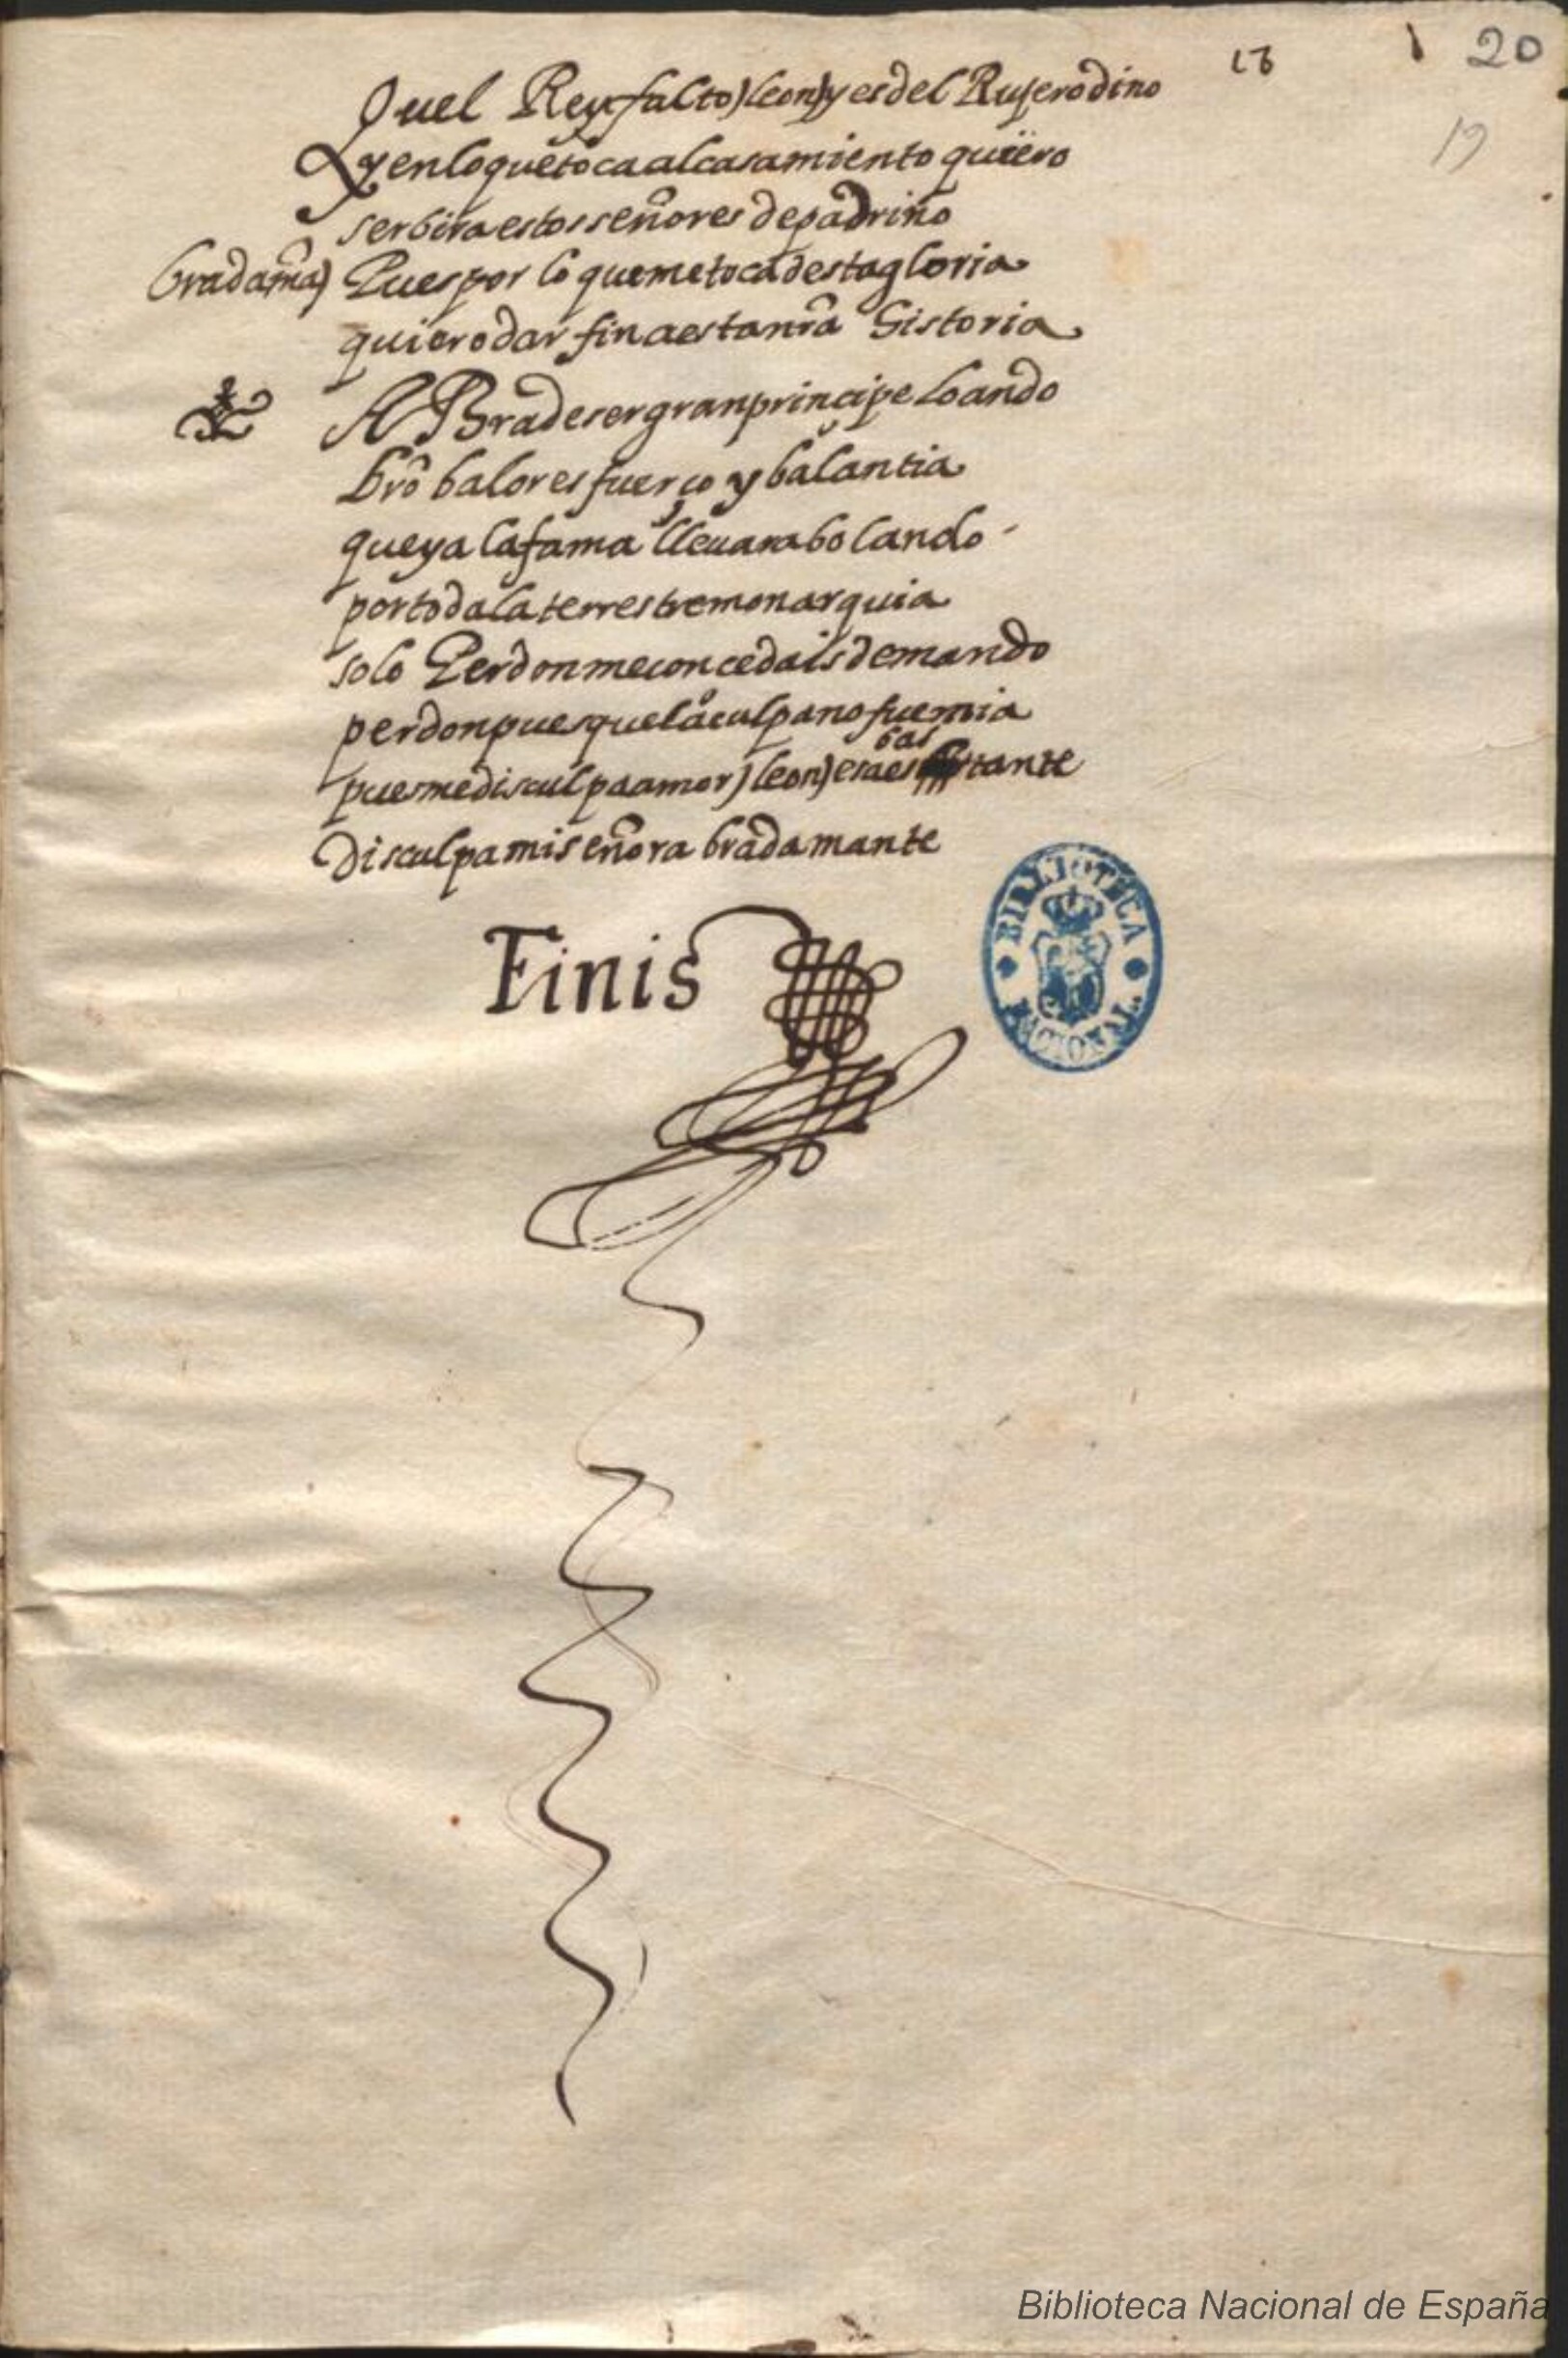 18 20
19
Quel Rey falto) leon) y es del Rujero dino
y en lo que toca al casamiento quiero
serbir a estos señores de padrino
bradama) Pues por lo que me toca desta gloria
quiero dar fin a esta nr̃a historia
A Bra de ser gran principe loando
br̃o balor esfuerço y balantia
que ya la fama lleuara bolando
por toda la terrestre monarquia
solo Perdon me concedais demando
perdon pues que la culpa no fue mia
pues me disculpa amor) leon) esa es bastante
Disculpa mi señora bradamante
Finis
BIBLIOTECA NACIONAL
Biblioteca Nacional de España